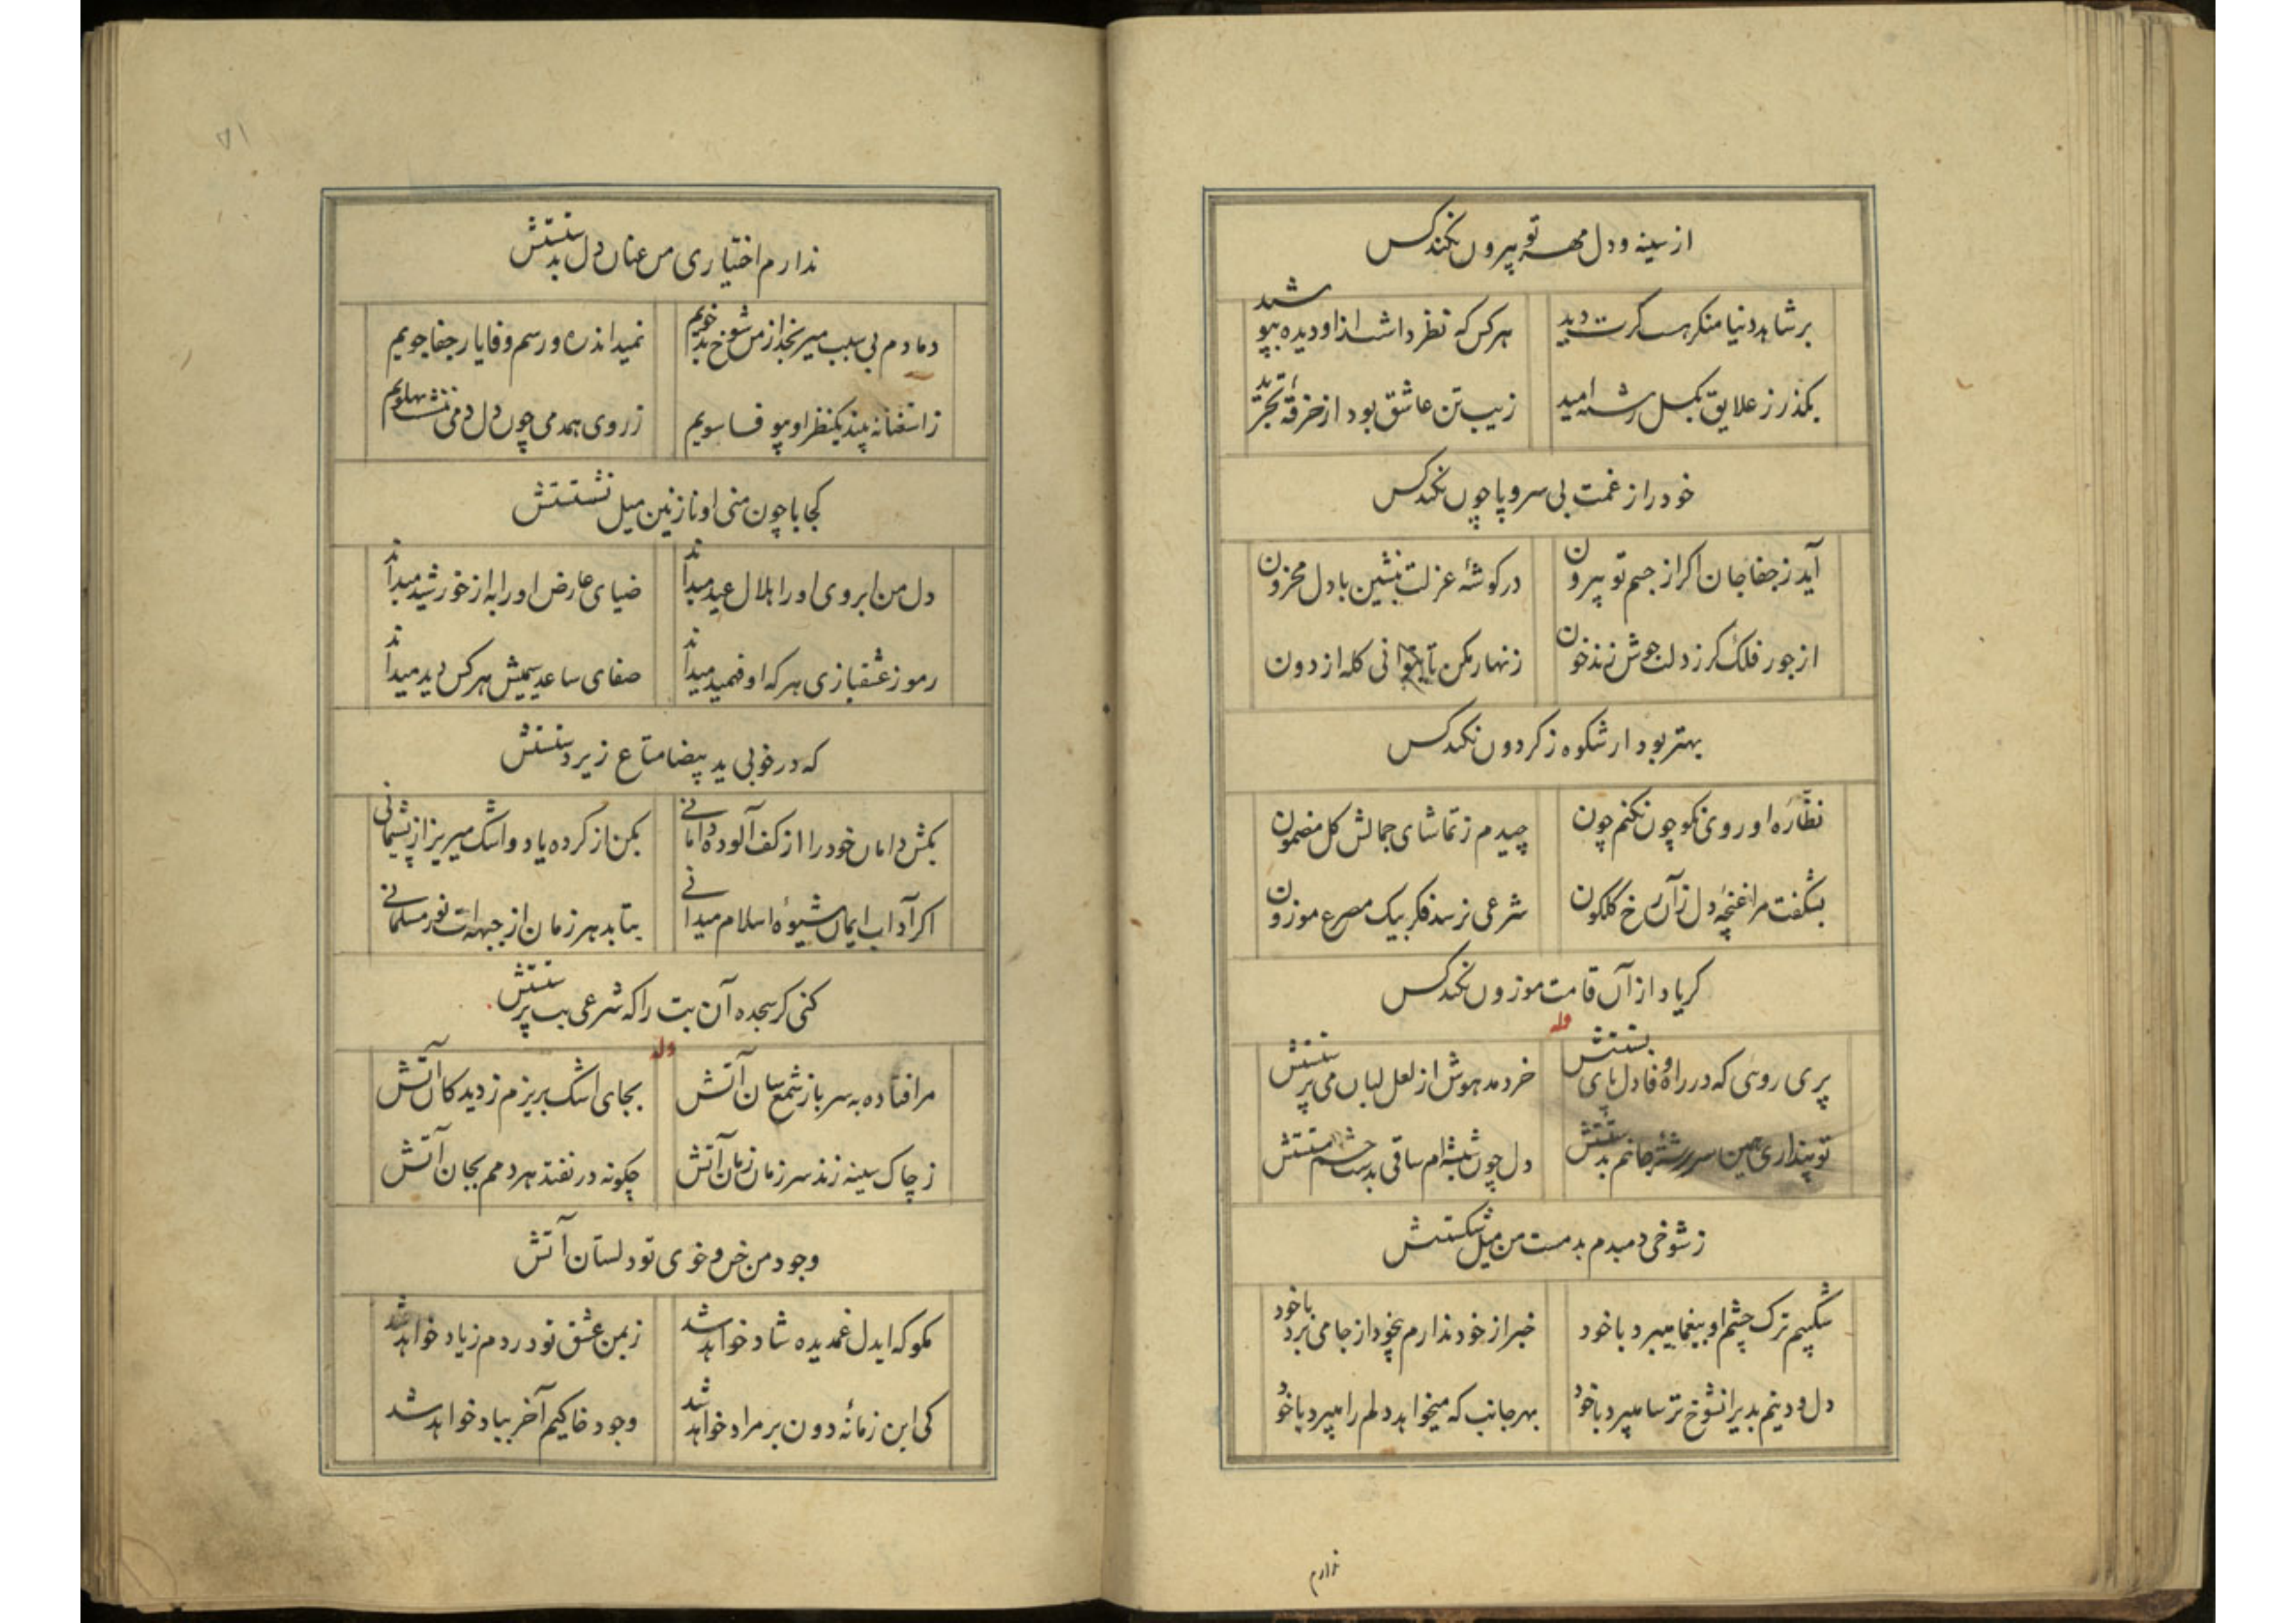 از سینه و دل مهر تو بیرون نکند کس
بر شاهد دنیا منگر هست کرت دید
هر کس که نظر داشت ازو دیده بپوشید
بگذر ز علایق بگسل رشته امید
زیب تن عاشق بود از خرقه تجرید
خود را ز غمت بی سر و پا چون نکند کس
آید ز جفا جان اگر از جسم تو بیرون
در گوشهٔ عزلت بنشین با دل محزون
از جور فلک گر ز دلت جوش زند خون
زنهار مکن تا بتوانی گله از دون
بهتر بود ار شکوه ز گردون نکند کس
نظّاره او روی نکو چون نکنم چون
چیدم ز تماشای جمالش گل مضمون
بشکفت مرا غنچهٔ دل زآن رخ گلگون
شرعی نرسد فکر بیک مصرع موزون
گر یاد از آن قامت موزون نکند کس
وله
پری روئی که در راه وفا دل پای بستستش
خرد مدهوش از لعل لبان می پرستستش
تو پنداری همین سررشتهٔ جانم بدستستش
دل چون شیشه‌ام ساقی بدست چشم مستستش
ز شوخی دمبدم بدمست من میل شکستستش
شکیبم ترک چشم او بیغما میبرد با خود
خبر از خود ندارم بیخود از جا می برد با خود
دل و دینم بدیر آنشوخ ترسا میبرد با خود
بهر جانب که میخواهد دلم را میبرد با خود
ندارم
ندارم اختیاری من عنان دل بدستستش
دمادم بی سبب میرنجد از من شوخ بدخویم
نمیداند ره و رسم وفا یار جفاجویم
ز استغنا نه بیند یکنظر او بیوفا سویم
ز روی همدمی چون دل دمی ننشست پهلویم
کجا با چون منی او نازنین میل نشستستش
دل من ابروی او را هلال عید میداند
ضیای عارض او را به از خورشید میداند
رموز عشقبازی هر که او فهمید میداند
صفای ساعد سیمیش هر کس دید میداند
که در خوبی ید بیضا متاع زیر دستستش
بکش دامان خود را از کف آلوده دامانی
بکن از کرده یاد و اشک میریز از پشیمانی
اگر آداب ایمان شیوهٔ اسلام میدانی
بتابد هر زمان از جبهه‌ات نور مسلمانی
کنی گر سجده آن بت را که شرعی بت پرستستش
وله
مرا فتاده به سر باز شمع سان آتش
بجای اشک بریزم ز دیدگان آتش
ز چاک سینه زند سر زمان زمان آتش
چگونه در نفتد هر دمم بجان آتش
وجود من خس و خوی تو دلستان آتش
مگو که ایدل غمدیده شاد خواهد شد
ز یمن عشق تو دردم زیاد خواهد شد
کی این زمانهٔ دون بر مراد خواهد شد
وجود خاکیم آخر بباد خواهد شد